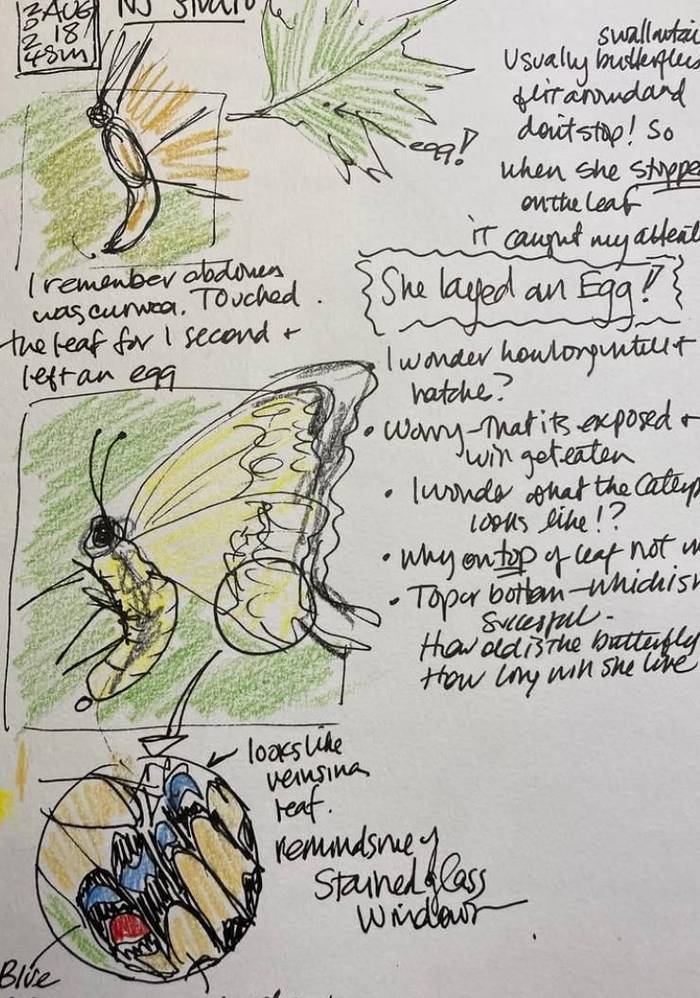 AUG
18
NJ
swallowtai
Usually butterflies
flit around and
don't stop! So
when she stoppe
on the leaf
it caught my attent
egg!
I remember abdomen
was curved. Touched
the leaf for 1 second +
left an egg
She layed an Egg!!
I wonder how long until it
hatche?
• Worry - that its exposed +
will get eaten
• I wonder what the caterp
looks like!?
• Why on top of leaf not
• Top or bottom - which is
succesful.
How old is the butterfly
How long will she live
looks like
veins in a
leaf.
reminds me of
Stained glass
Window
Blue